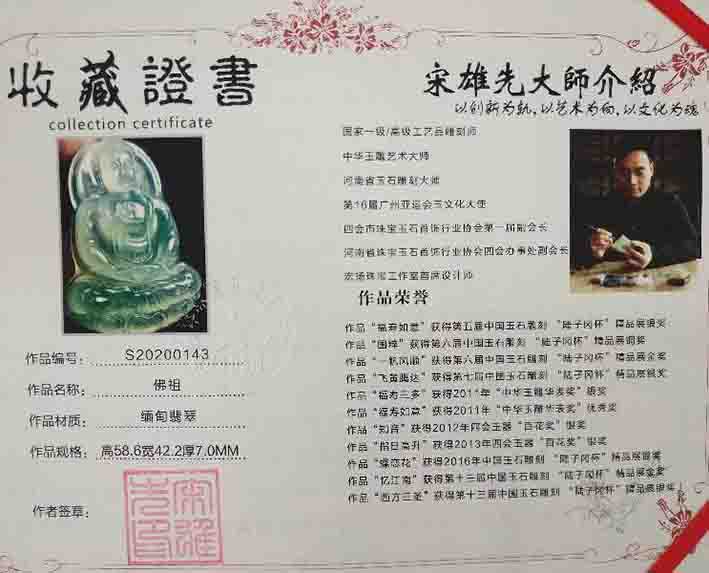 收藏證書
collection certificate
作品编号: S20200143
作品名称: 佛祖
作品材质: 缅甸翡翠
作品规格: 高58.6宽42.2厚7.0MM
作者签章:
宋雄先印
宋雄先大師介紹
以创新为轨,以艺术为面,以文化为魂
国家一级/高级工艺品雕刻师
中华玉雕艺术大师
河南省玉石雕刻大师
第16届广州亚运会玉文化大使
四会市珠宝玉石首饰行业协会第一届副会长
河南省珠宝玉石首饰行业协会四会办事处副会长
宏扬珠宝工作室首席设计师
作品荣誉
作品“福寿如意”获得第五届中国玉石雕刻 “陆子冈杯”精品展银奖
作品“国粹”获得第六届中国玉石雕刻 “陆子冈杯”精品展铜奖
作品“一帆风顺”获得第六届中国玉石雕刻 “陆子冈杯”精品展金奖
作品“飞黄腾达”获得第七届中国玉石雕刻 “陆子冈杯”精品展银奖
作品“福寿三多”获得2011年“中华玉雕华表奖”银奖
作品“福寿如意”获得2011年“中华玉雕华表奖”优秀奖
作品“知音”获得2012年四会玉器“百花奖”银奖
作品“指日高升”获得2013年四会玉器“百花奖”银奖
作品“蝶恋花”获得2016年中国玉石雕刻 “陆子冈杯”精品展银奖
作品“忆江南”获得第十三届中国玉石雕刻 “陆子冈杯”精品展金奖
作品“西方三圣”获得第十三届中国玉石雕刻 “陆子冈杯”精品展银奖